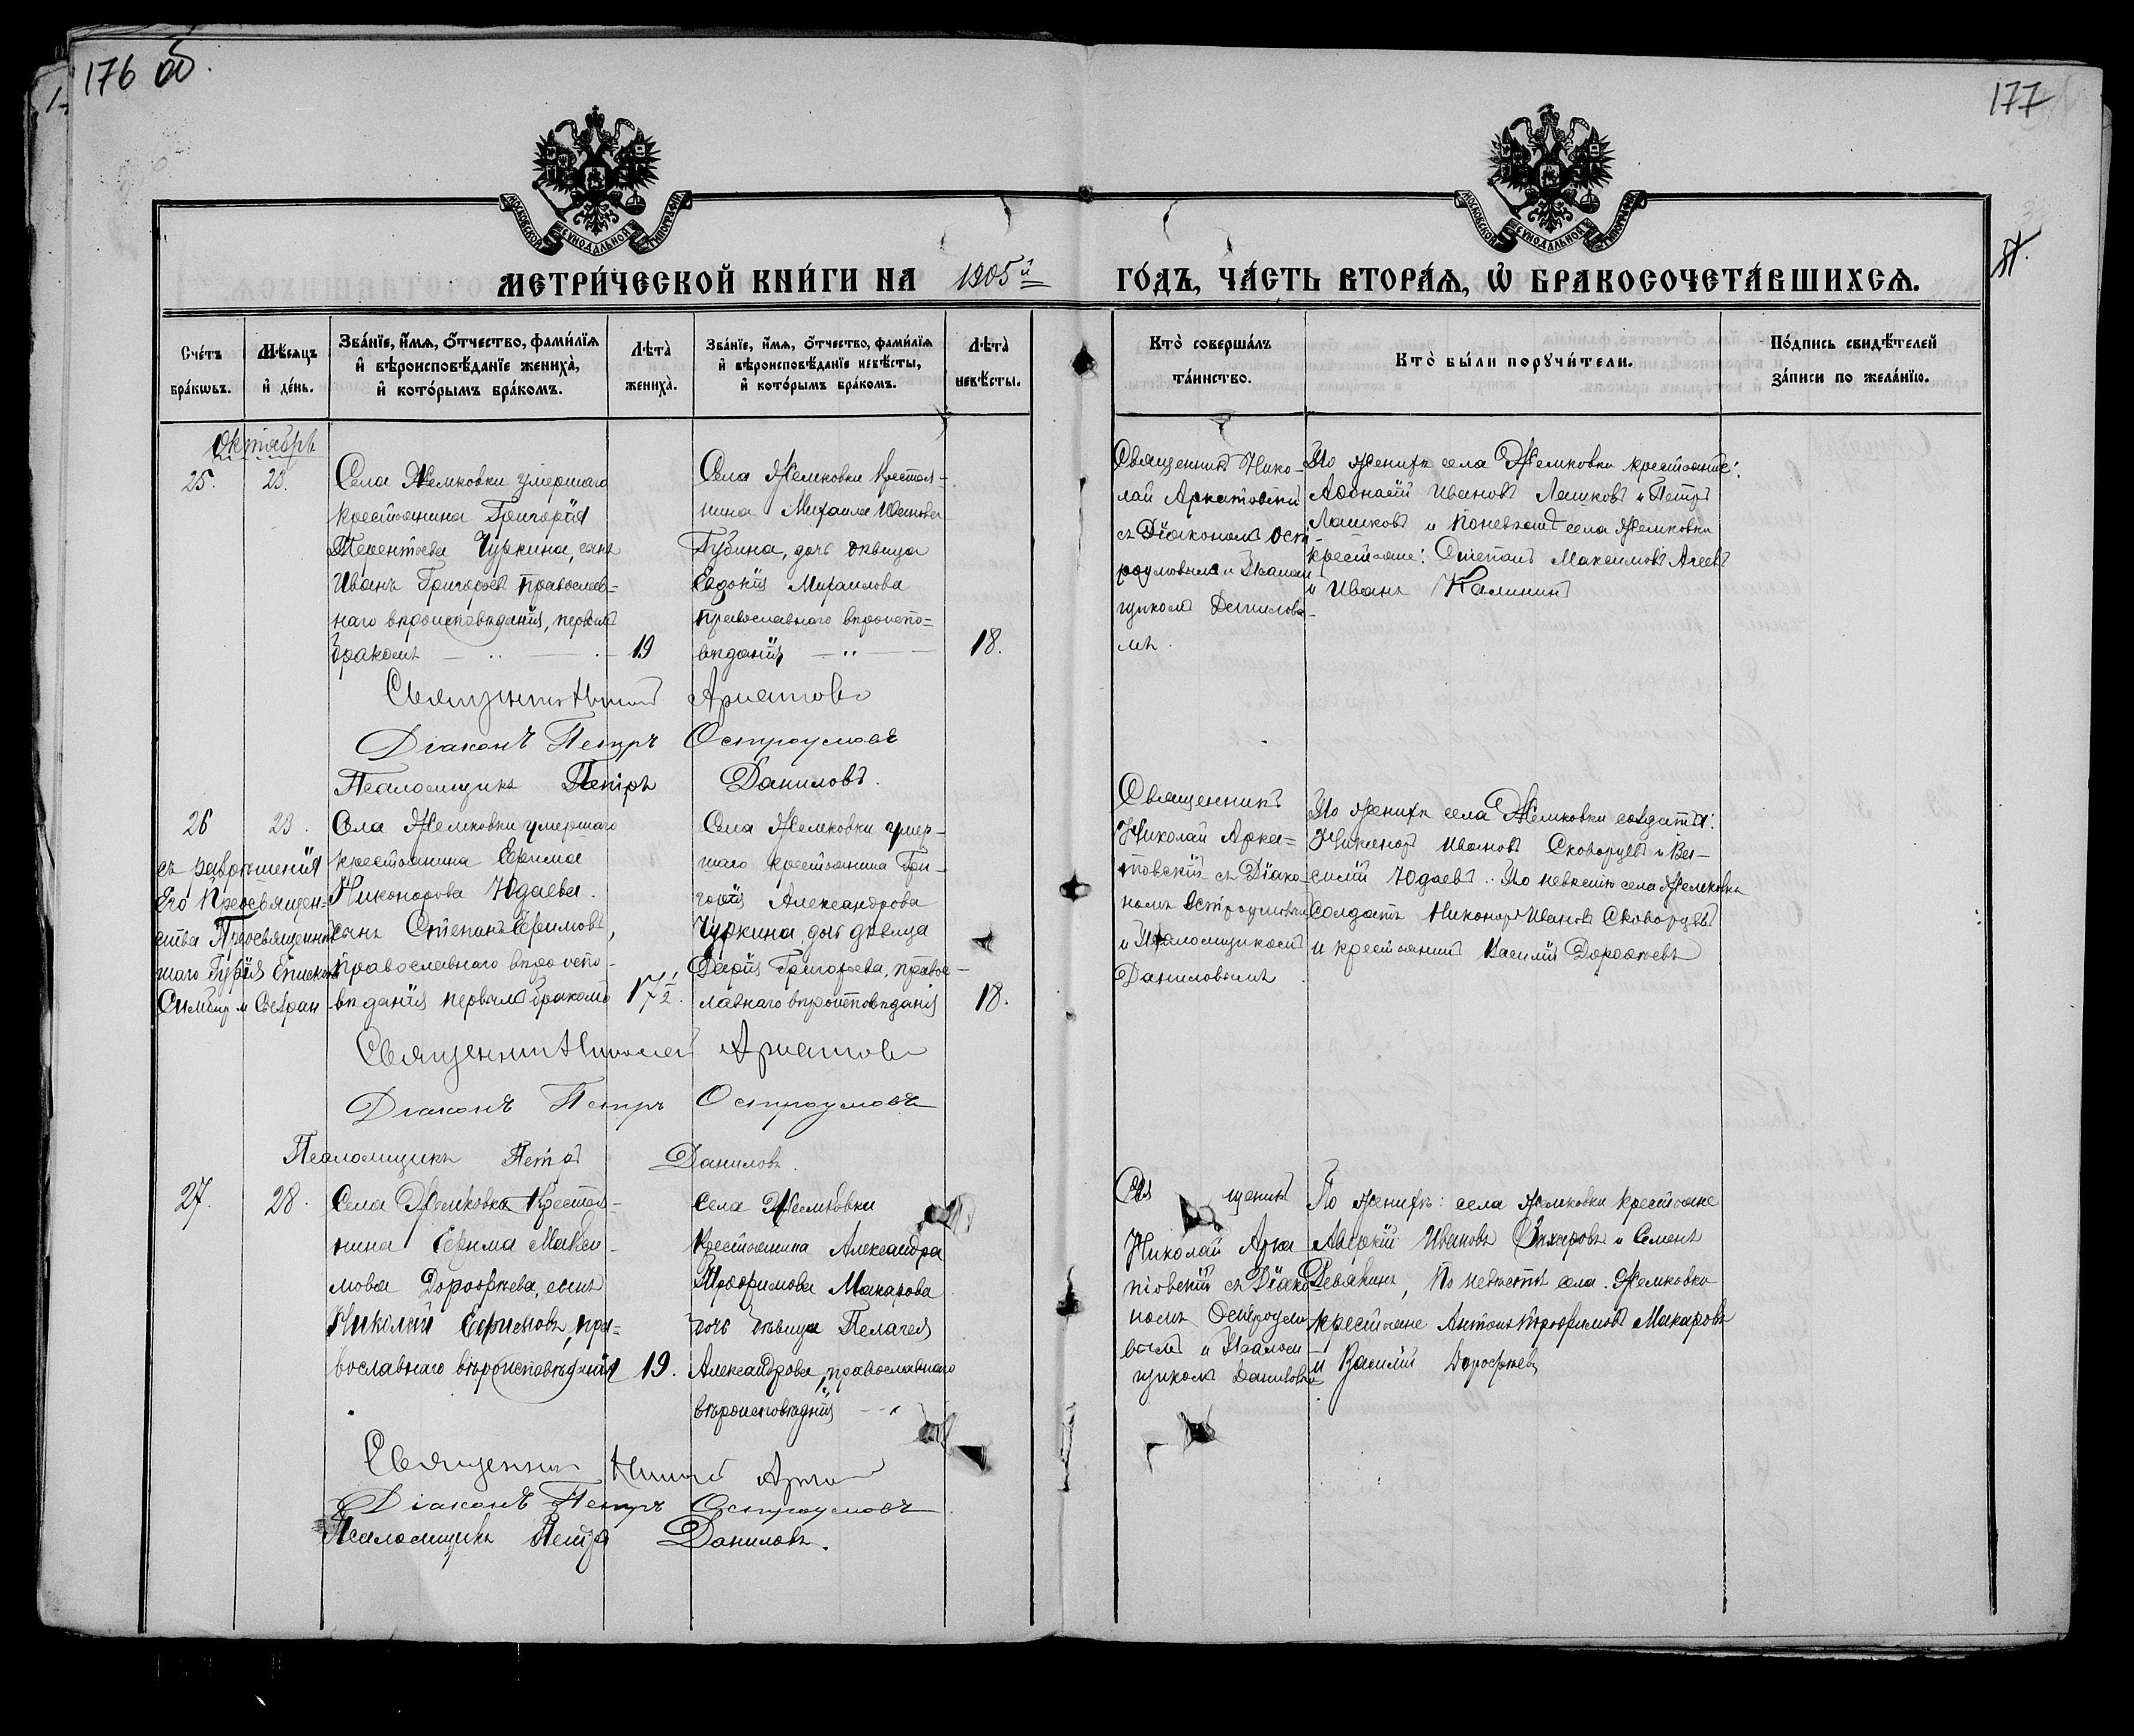 176 об.
177
МОСКОВСКОЙ СѴНОДАЛЬНОЙ ТИПОГРАФІИ
МОСКОВСКОЙ СѴНОДАЛЬНОЙ ТИПОГРАФІИ
МЕТРИ́ЧЕСКОЙ КНИ́ГИ НА 1905й
ГО́ДЪ, ЧА́СТЬ ВТОРА́Я, Ѽ БРАКОСОЧЕТА́ВШИХСЯ.
Сче́тъ бра́кωвъ.
Мѣ́сяцъ и҆ де́нь.
Зва́нїе, и҆́мѧ, ѻ҆́тчество, фами́лїѧ
и҆ вѣроисповѣ́данїе жениха̀,
и҆ кото́рымъ бра́комъ.
Лѣта̀ жениха̀.
Зва́нїе, и҆́мѧ, ѻ҆́тчество, фами́лїѧ
и҆ вѣроисповѣ́данїе невѣ́сты,
и҆ кото́рымъ бра́комъ.
Лѣта̀ невѣ́сты.
Кто̀ соверша́лъ
та́инство.
Кто̀ бы́ли порꙋчи́тели.
По́дпись свидѣ́телей
за́писи по жела́нїю.
Октябрь
25.
23.
Села Жемковки умершаго
крестьянина Григорія
Терентьева Чуркина, сынъ
Иванъ Григорьевъ православ-
наго вѣроисповѣданія, первымъ
бракомъ
19
Села Жемковки крестья-
нина Михаила Иванова
Губина, дочь дѣвица
Евдокія Михаилова
православнаго вѣроиспо=
вѣданія
18.
Священникъ Нико-
лай Аркатовскій
съ Діакономъ Ост-
роумовымъ и Псалом
щикомъ Данилов-
мъ.
По женихѣ села Жемковки крестьяне:
Афонасій Ивановъ Лашковъ и Петръ
Лашковъ и По невѣстѣ села Жемковки
крестьяне: Степанъ Максимовъ Агеевъ
и Иванъ Калининъ
Священникъ Николай
Діаконъ Петръ Остроумовъ
Псаломщикъ Петръ Даниловъ.
26
23.
съ разрѣшенія
Его Преосвящен-
ства Преосвященнѣй
шаго Гурія Епископа
Симбир и Сызран
Села Жемковки умершаго
крестьянина Ефима
Никонорова Юдаева.
сынъ Степанъ Ефимовъ,
православнаго вѣроиспо-
вѣданія первымъ бракомъ
17½.
Села Жемковки умер-
шаго крестьянина Гри-
горія Александрова
Чуркина, дочь дѣвица
Дарія Григорьева, правос-
лавнаго вѣроисповѣданія
18.
Священникъ
Николай Арка=
товскій съ Діако-
номъ Остроумовым
и Псаломщикомъ
Даниловымъ
По женихѣ села Жемковки солдаты:
Никаноръ Ивановъ Скворцовъ и Ва-
силій Юдаевъ. По невѣстѣ села Жемковки
Солдатъ Никоноръ Ивановъ Скворцовъ
и крестьянинъ Василій Дорофѣевъ
Священникъ Николай
Діаконъ Петръ Остроумовъ
Псаломщикъ Петръ Даниловъ.
27.
28.
Села Жемковка крестья-
нина Ефима Макси-
мова Дорофѣева, сынъ
Николай Ефимовъ, пра=
вославнаго вѣроисповѣданія
19.
Села Жемковки
крестьянина Александра
Трофимова Макарова
дочь дѣвица Пелагея
Александрова, православнаго
вѣроисповѣданія
Свя щенникъ
Николай Арка
товскій съ Діако
номъ Остроумо
вымъ и Псалом-
щикомъ Даниловым
По женихѣ: села Жемковки крестьяне
Аверкій Ивановъ и Семенъ
Девякинъ, По невѣстѣ села Жемковки
крестьяне Антонъ Трофимовъ Макаровъ
и Василій Дорофѣевъ
Священникъ Николай
Діаконъ Петръ Остроумовъ
Псаломщикъ Петръ Даниловъ.